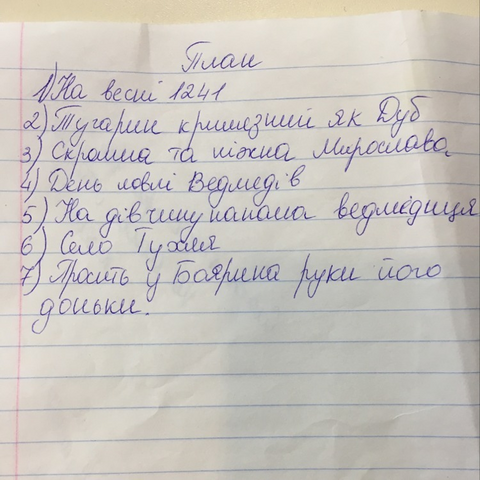 План
1) На весні 1241
2) Тугарин кримезний як Дуб
3) Скромна та ніжна Мирослава
4) День ловлі Ведмедів
5) На дівчину напала ведмедиця
6) Село Тухля
7) Просить у Боярина руки його
доньки.